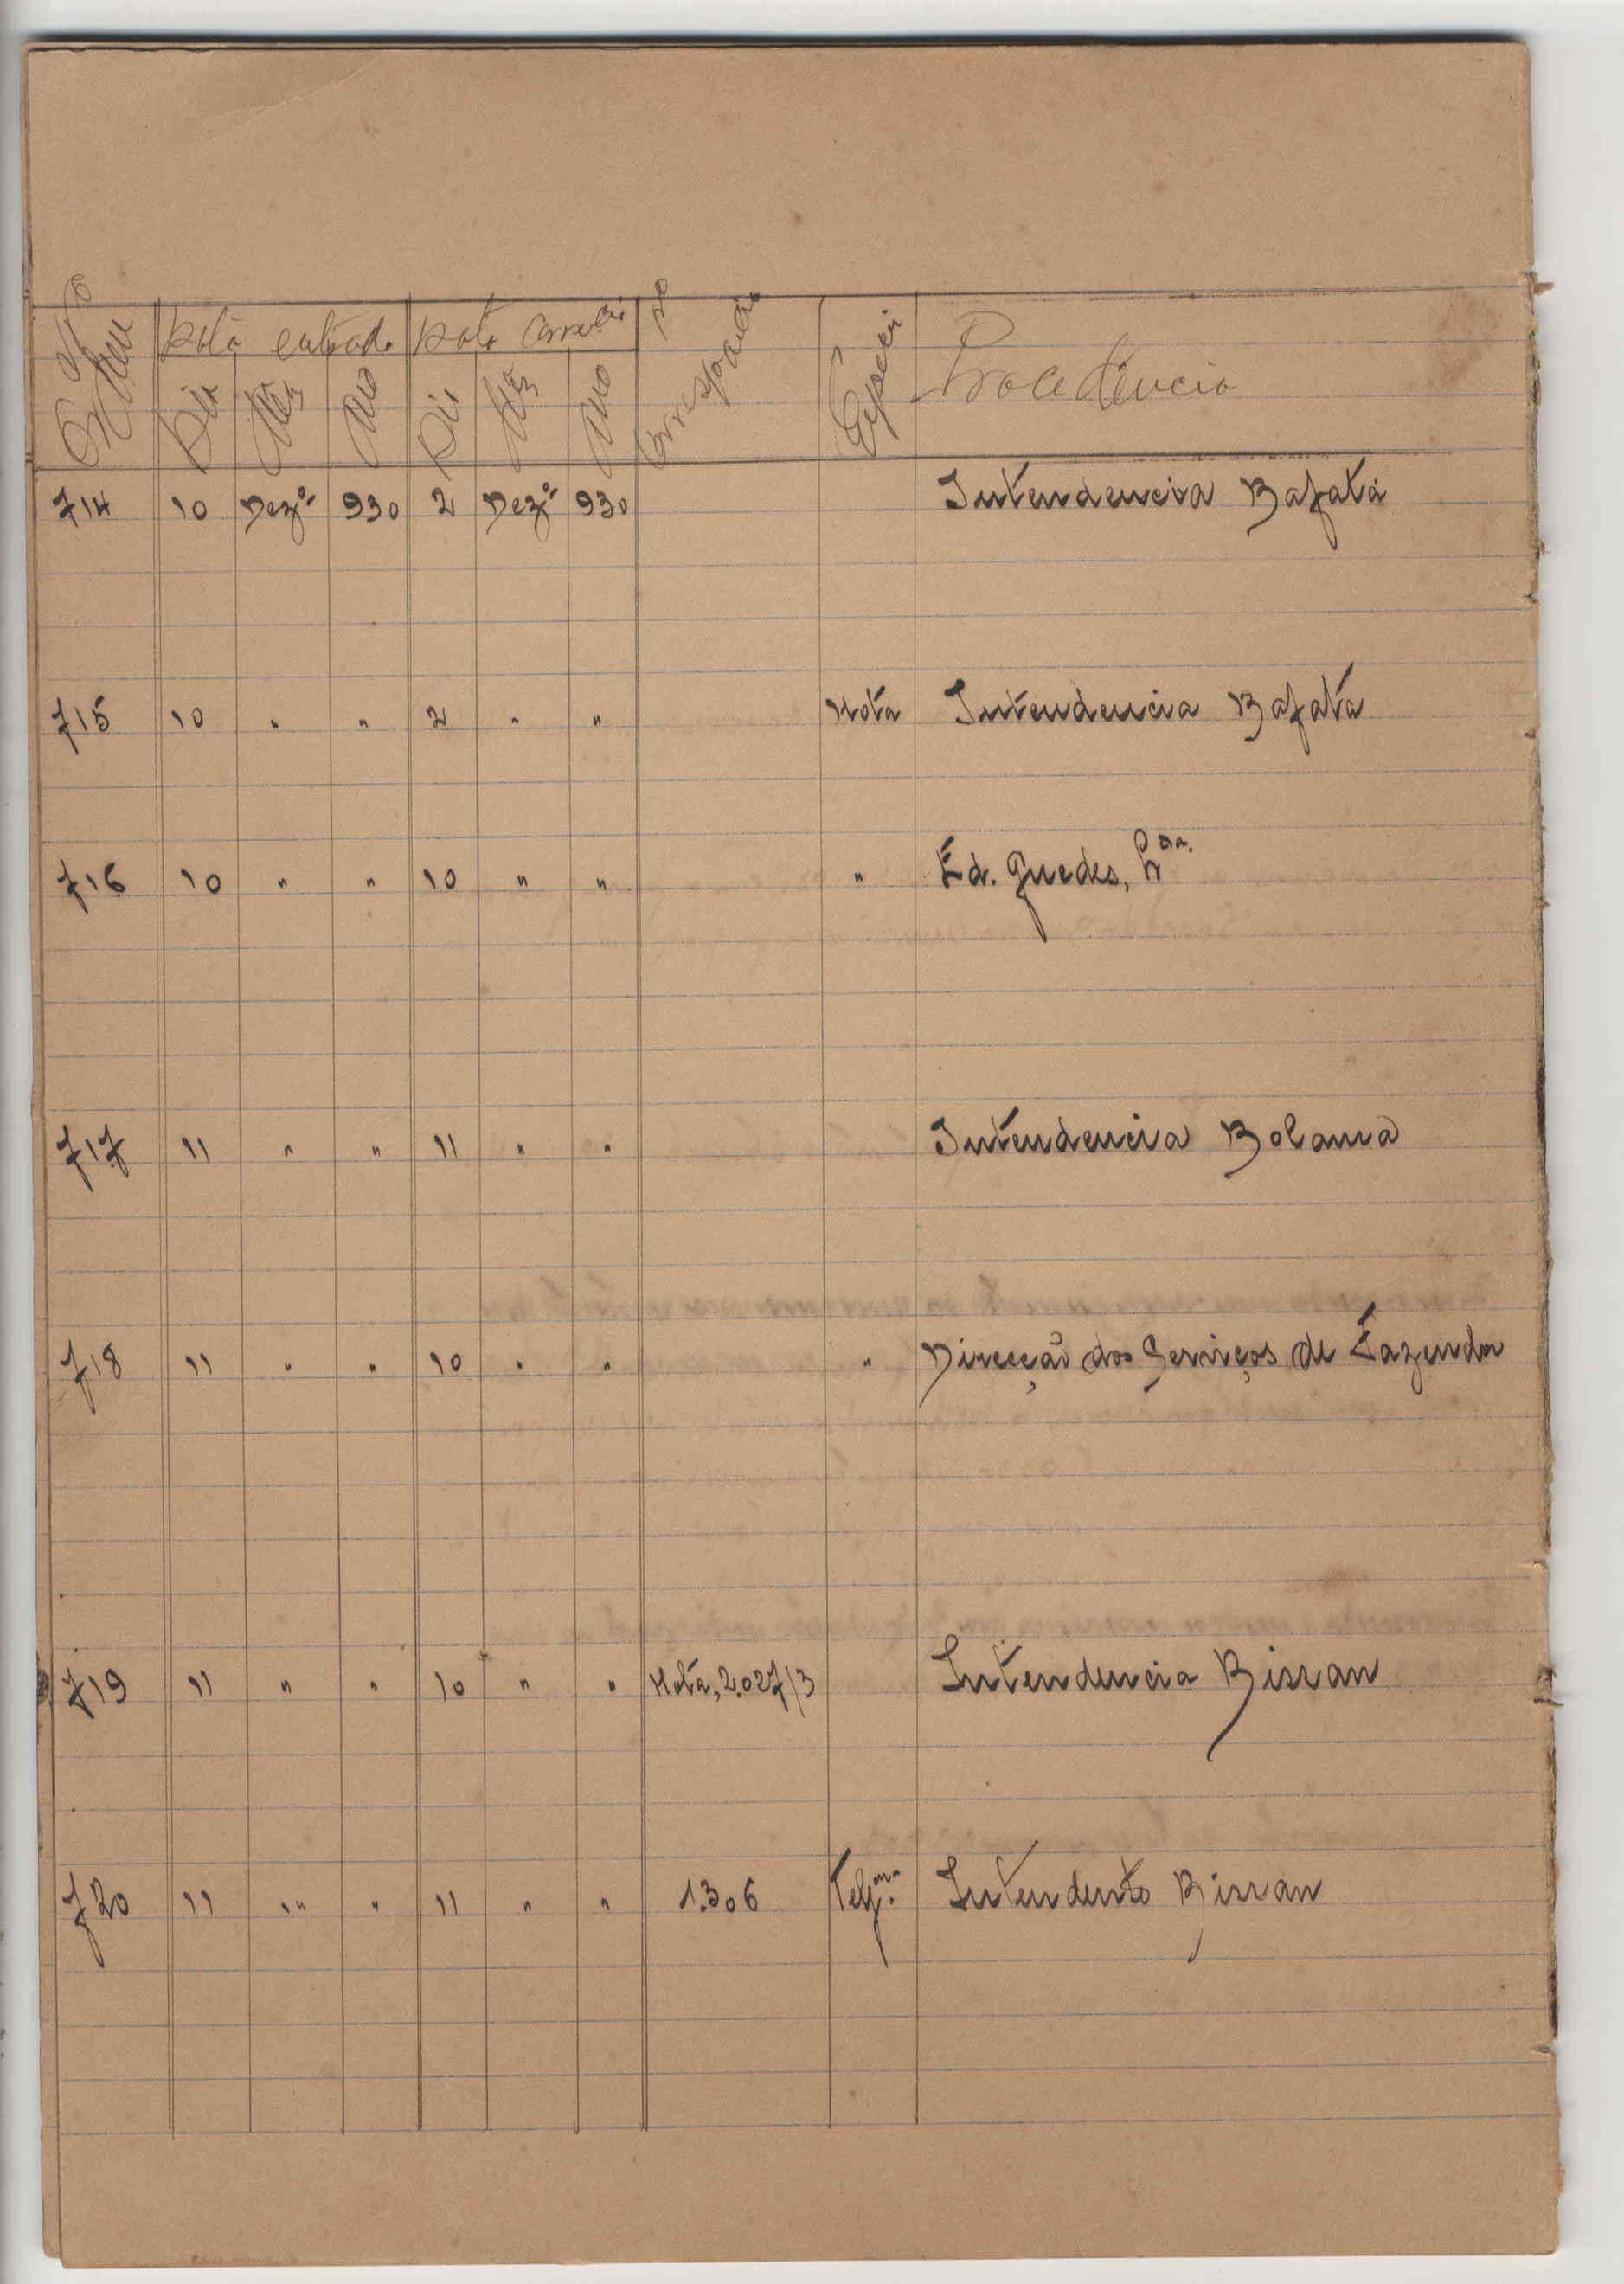 Nº Ordem | Data entrada | Data Corresp.cia | Nº Correspondencia | Especie | Procedencia
Dia | Mês | Ano | Dia | Mês | Ano
714 10 Dezº 930 2 Dezº 930 Intendencia Bafatá
715 10 " " 2 " " Nota Intendencia Bafatá
716 10 " " 10 " " " Ed. Guedes, Lda.
717 11 " " 11 " " Intendencia Bolama
718 11 " " 10 " " " Direcção dos Serviços de Fazenda
719 11 " " 10 " " Nota, 2.027/3 Intendencia Bissau
720 11 " " 11 " " 1.306 Telgma. Intendente Bissau